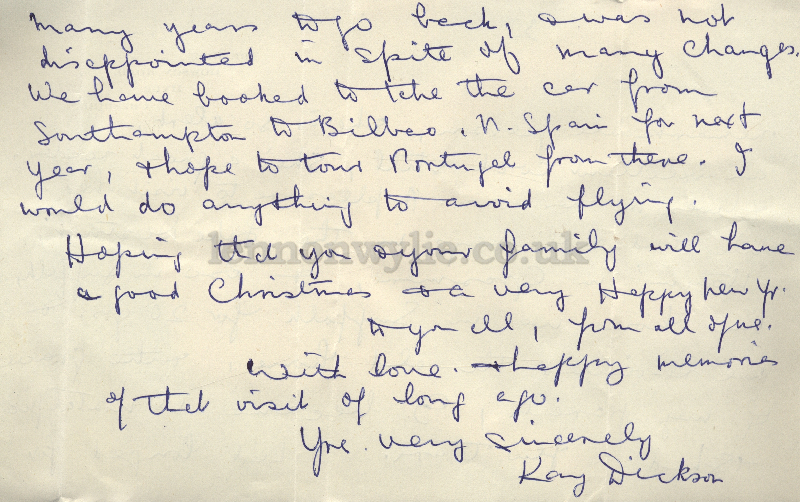 many years to go back, & was not
disappointed in spite of many changes.
We have booked to take the car from
Southampton to Bilbao, N. Spain for next
year, & hope to tour Portugal from there. I
would do anything to avoid flying.
Hoping that you & your family will have
lennonwylie.co.uk
a good Christmas & a very Happy New Yr.
to you all, from all of us.
With love. & happy memories
of that visit of long ago.
Yrs. very sincerely
Kay Dickson